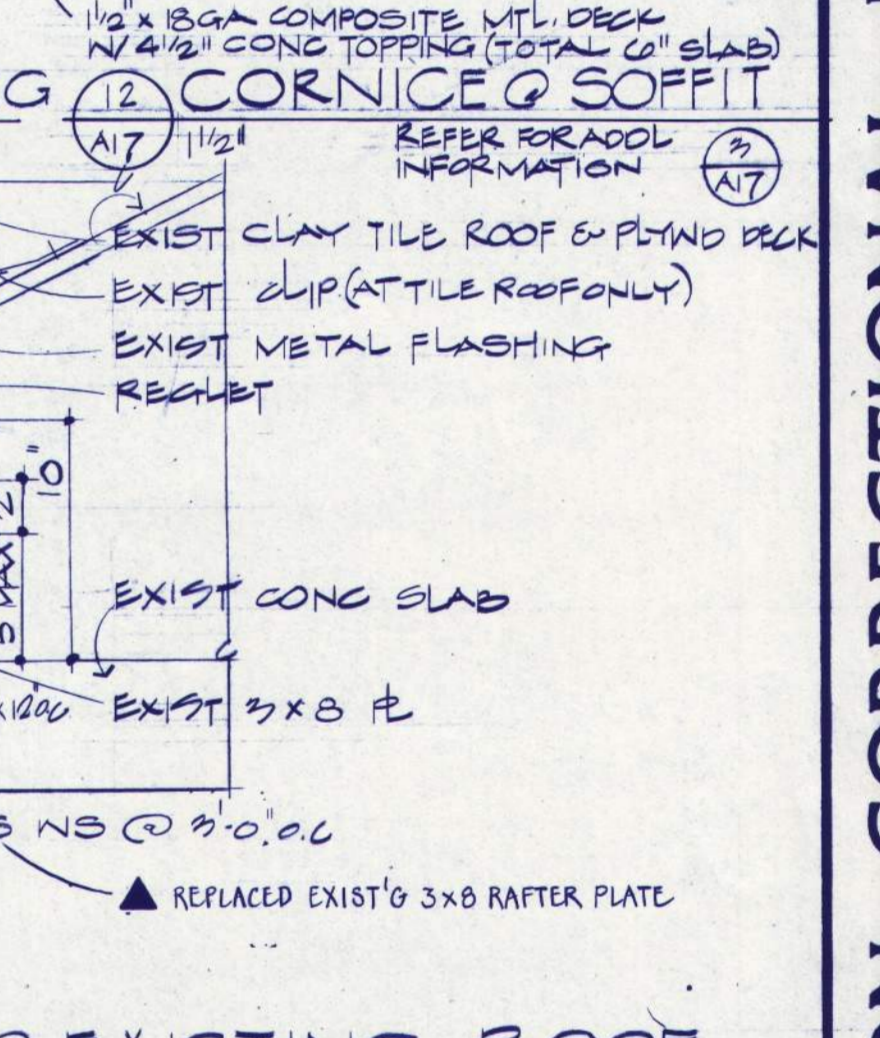 1 1/2" x 18GA COMPOSITE MTL. DECK
W/ 4 1/2" CONC TOPPING (TOTAL 6" SLAB)
G 12 CORNICE @ SOFFIT
A17 1 1/2" REFER FOR ADDL
INFORMATION
3
A17
EXIST CLAY TILE ROOF & PLYWD DECK
EXIST CLIP (AT TILE ROOF ONLY)
EXIST METAL FLASHING
REGLET
10"
2
MAX
EXIST CONC SLAB
x12"OC EXIST 3 x 8 PL
S WS @ 3'-0" O.C
REPLACED EXIST'G 3x8 RAFTER PLATE
EXISTING ROOF